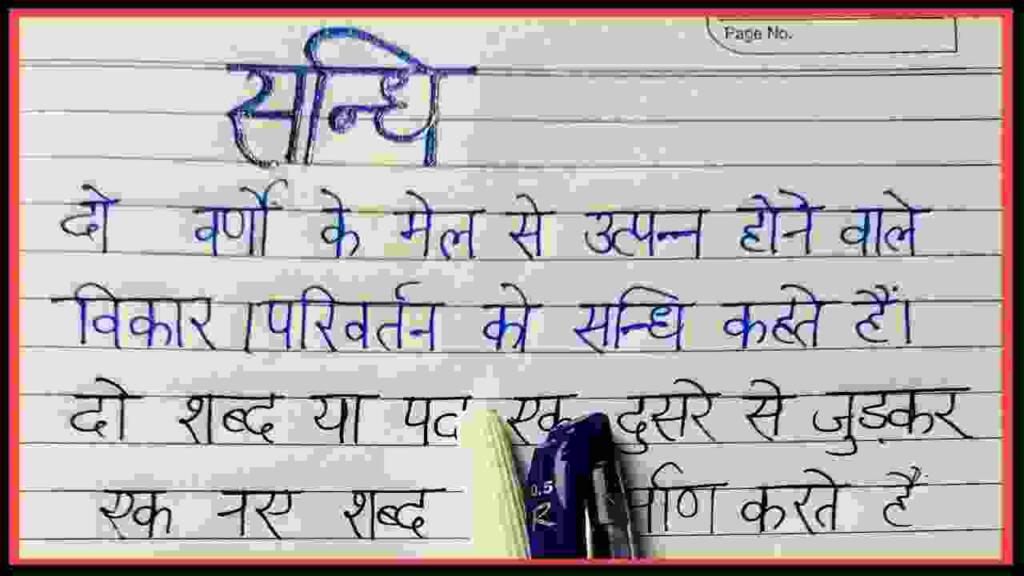 Page No.
सन्धि
दो वर्णों के मेल से उत्पन्न होने वाले
विकार /परिवर्तन को सन्धि कहते हैं।
दो शब्द या पद एक दुसरे से जुड़कर
एक नए शब्द करते हैं
0.5
R